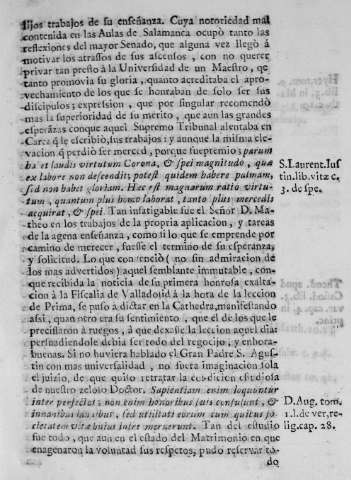 llos trabajos de su enseñanza. Cuya notoriedad mal
contenida en las Aulas de Salamanca ocupò tanto las
reflexiones del mayor Senado, que alguna vez llegò à
motivar los atrassos de sus ascensos, con no querer
privar tan presto à la Universidad de un Maestro, que
tanto promovia su gloria, quanto acreditaba el apro-
vechamiento de los que se honraban de solo ser sus
discipulos; expression, que por singular recomendò
mas la superioridad de su merito, que aun las grandes
esperãzas conque aquel Supremo Tribunal alentaba en
Carta q̃ le escribiò, sus trabajos; y aunque la misma ele-
vacion q̃ perdiò ser merced, porque fue premio; parum
ba et laudis virtutum Corona, & spei magnitudo, quæ
ex labore non descendit; potest quidem habere palmam,
sed non habet gloriam. Hæc est magnarum ratio virtu-
tum, quantum plus homo laborat, tanto plus mercedis
acquirat, & spei. Tan infatigable fue el Señor D. Ma-
theo en los trabajos de la propria aplicacion, y tareas
de la agena enseñanza, como si lo que se emprende por
camino de merecer, fuesse el termino de su esperanza,
y solicitud. Lo que convenciò (no sin admiracion de
los mas advertidos) aquel semblante immutable, con-
que recibida la noticia de su primera honrosa exalta-
cion à la Fiscalia de Valladolid à la hora de la leccion
de Prima, se puso à dictar en la Cathedra, manifestando
assi, quan otro era su sentimiento, que el de los que le
precisaron à ruegos, à que dexasse la leccion aquel dia:
persuadiendole debia ser todo del regocijo, y enhora-
buenas. Si no huviera hablado el Gran Padre S. Agus-
tin con mas universalidad, no fuera imaginacion sola
el juizio, de que quiso retratar la condicion estudiosa
de nuestro zeloso Doctor. Sapientiam enim loquuntur
inter perfectos; non enim honoribus suis consulunt, &
inanibus laudibus, sed utilitati eorum cum quibus so-
cietatem vitæ huius inire meruerunt. Tan del estudio
fue todo, que aun en el estado del Matrimonio en que
enagenaron la voluntad sus respetos, pudo reservar to-
do
S. Laurent. Ius
tin. lib. vitæ c.
3. de spe.
D. Aug. tom.
1. l. de ver, re-
lig. cap. 28.